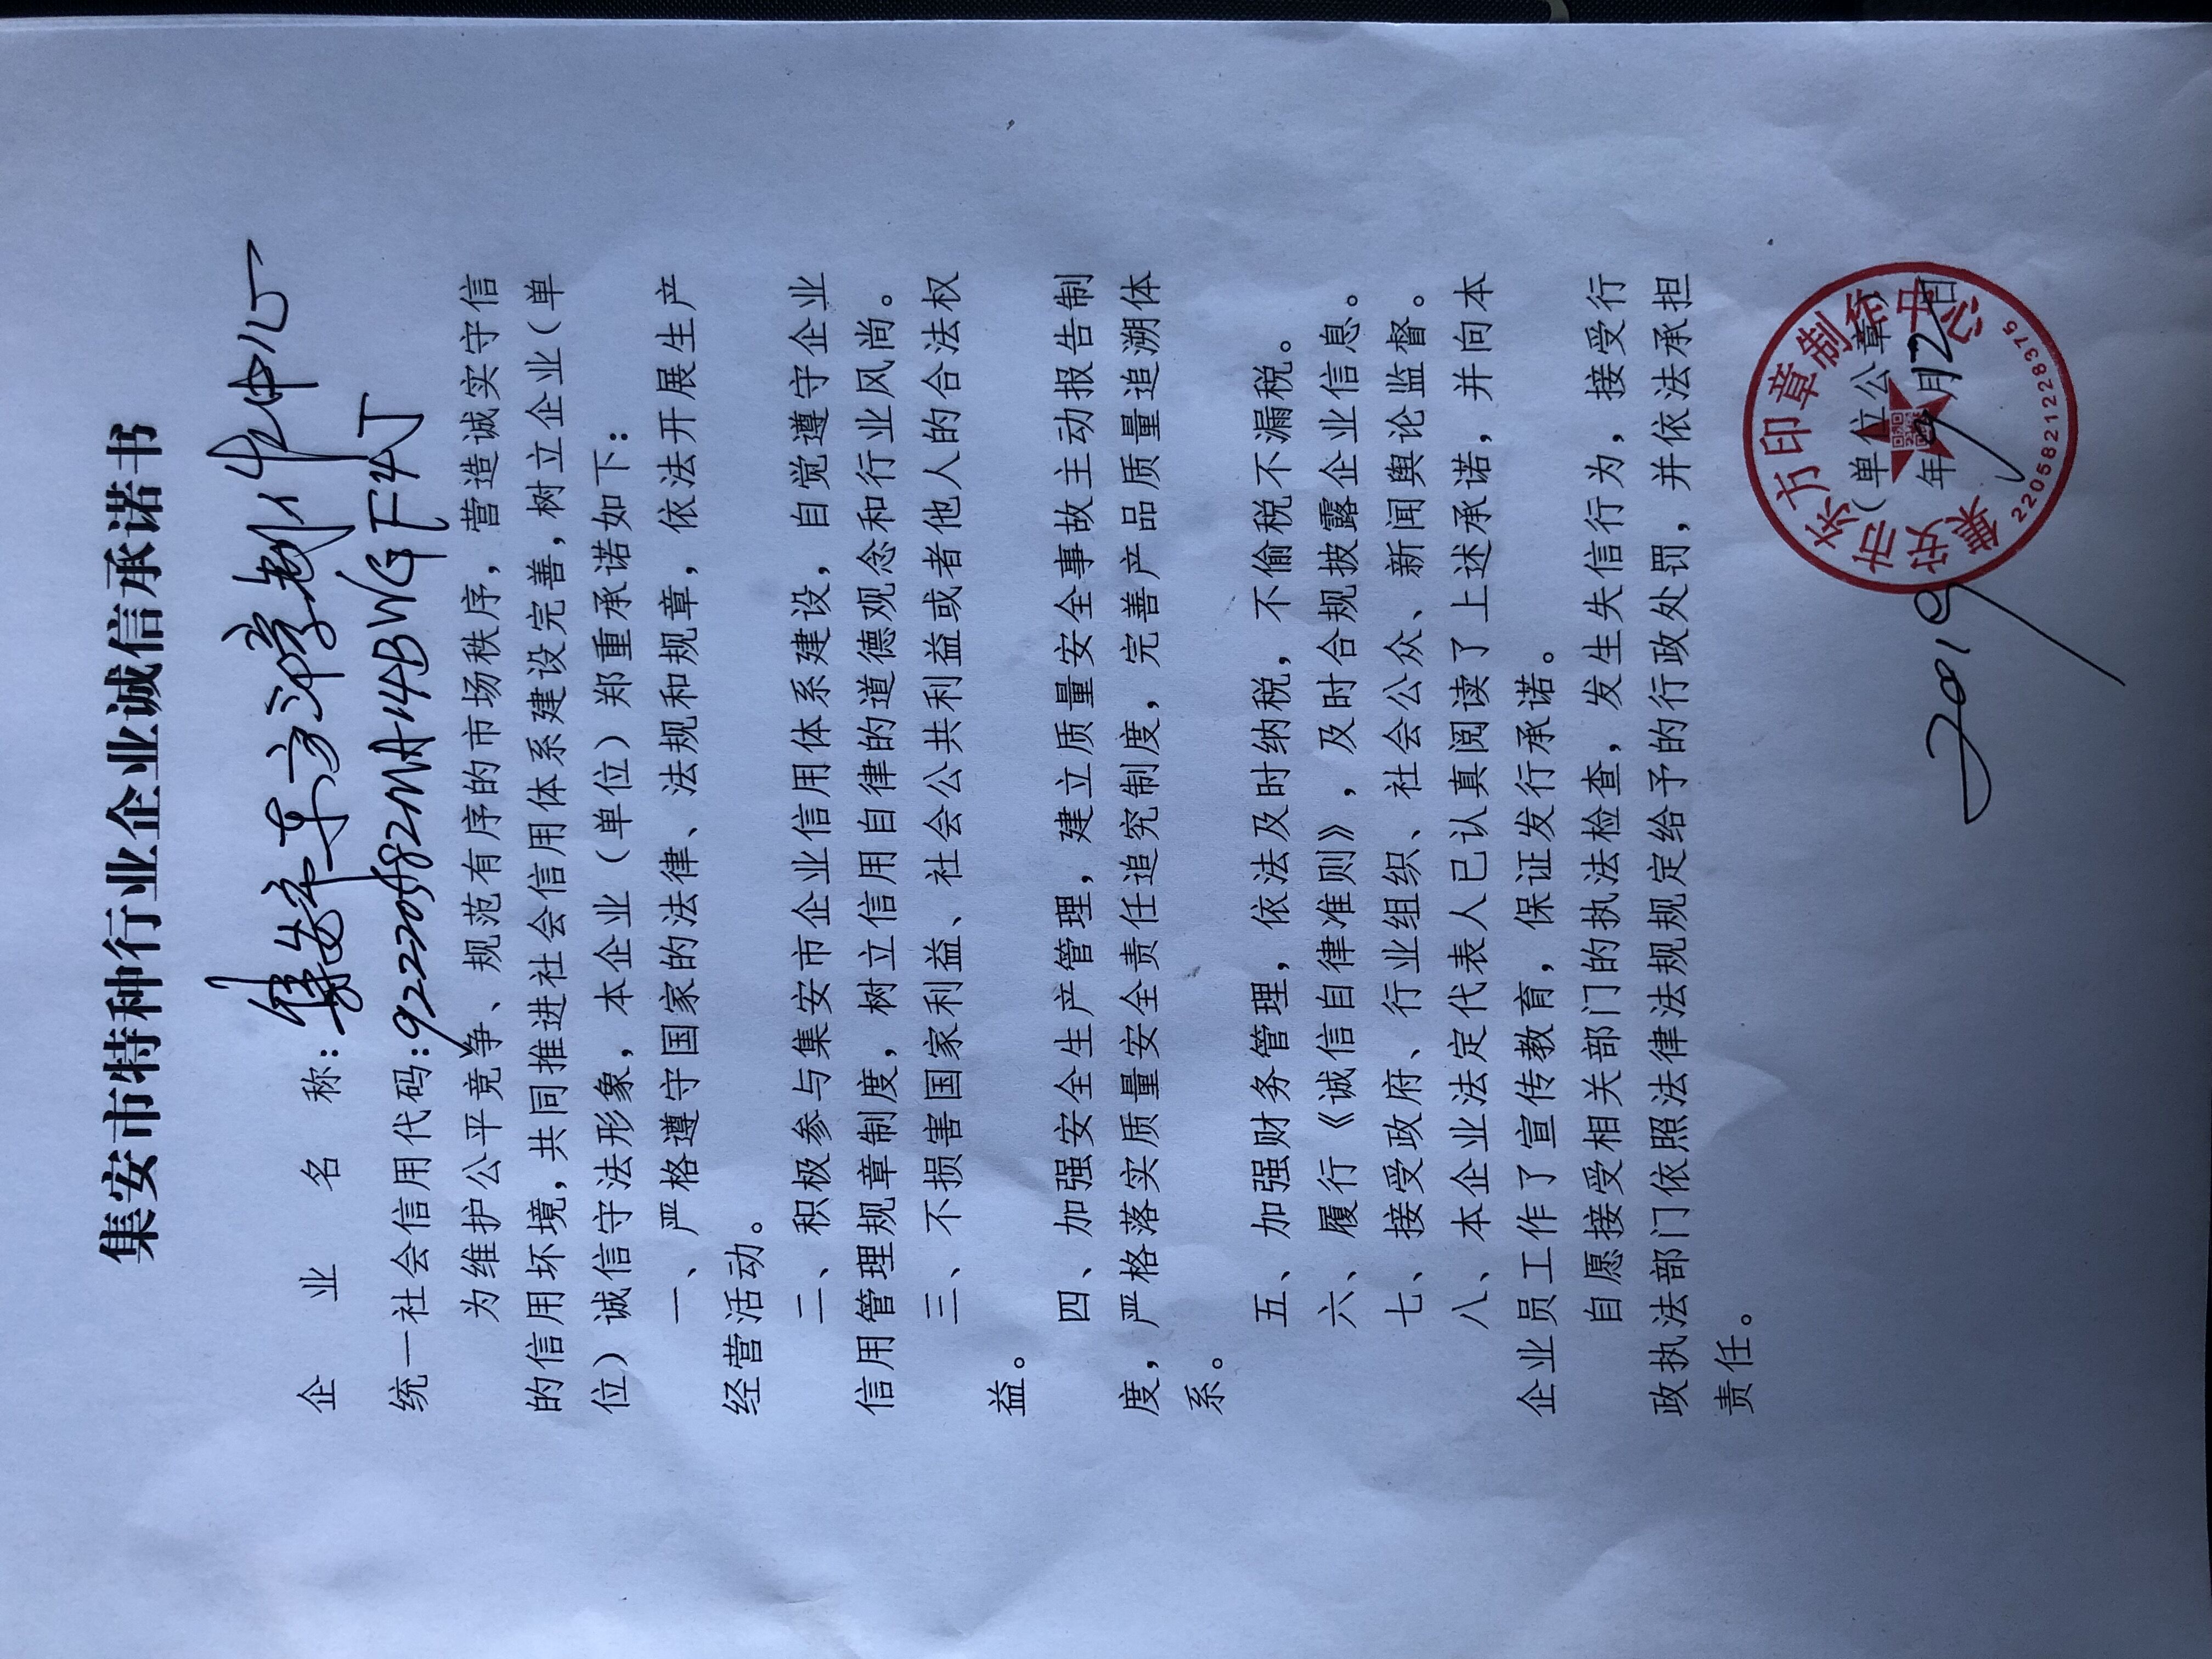 集安市特种行业企业诚信承诺书
企业名称：集安市东方印章制作中心
统一社会信用代码：92220582MA14BWGF4J
为维护公平竞争、规范有序的市场秩序，营造诚实守信
的信用坏境，共同推进社会信用体系建设完善，树立企业（单
位）诚信守法形象，本企业（单位）郑重承诺如下：
一、严格遵守国家的法律、法规和规章，依法开展生产
经营活动。
二、积极参与集安市企业信用体系建设，自觉遵守企业
信用管理规章制度，树立信用自律的道德观念和行业风尚。
三、不损害国家利益、社会公共利益或者他人的合法权
益。
四、加强安全生产管理，建立质量安全事故主动报告制
度，严格落实质量安全责任追究制度，完善产品质量追溯体
系。
五、加强财务管理，依法及时纳税，不偷税不漏税。
六、履行《诚信自律准则》，及时合规披露企业信息。
七、接受政府、行业组织、社会公众、新闻舆论监督。
八、本企业法定代表人已认真阅读了上述承诺，并向本
企业员工作了宣传教育，保证发行承诺。
自愿接受相关部门的执法检查，发生失信行为，接受行
政执法部门依照法律法规规定给予的行政处罚，并依法承担
责任。
（单位公章）
2019年9月12日
集安市东方印章制作中心
2205821228375